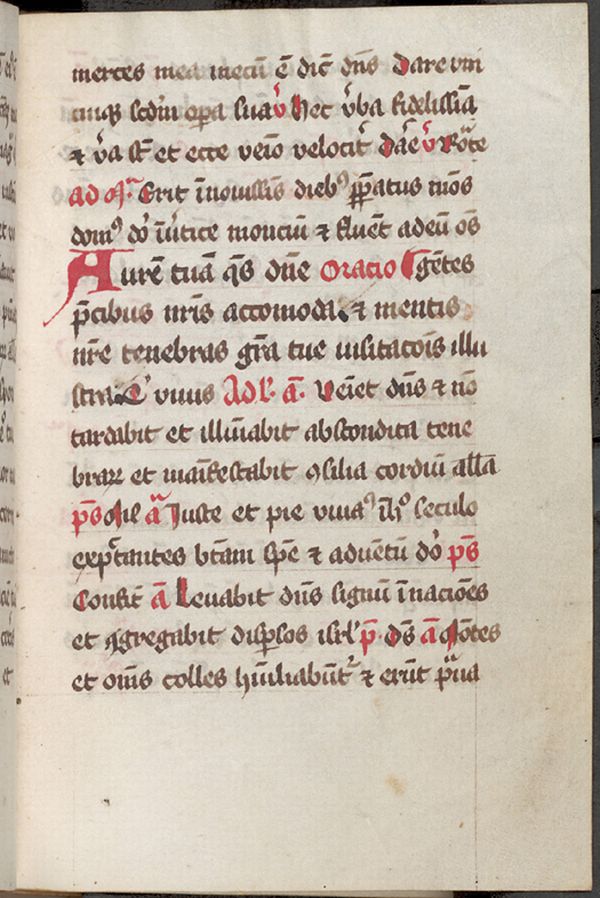 merces mea mecū ē dic̄ dn̄s Dare uni
cuiqꝫ scdm̄ opa sua v̉ Hec v̉ba fidelissīa
⁊ v̉a st̄ et ecce venio velocit̉ Dāe v̉ Rōte
ad Erit ī nouissīs dieb⁹ p̄patus mōs
dom⁹ dō ī v̉tice monciū ⁊ fluēt ad eū oēs
Aurē tuā qs̄ dn̄e Oracio gētes
p̄cibus nr̄is accomoda ⁊ mentis
nr̄e tenebras gr̄a tue uisitacōis illu
stra Q̄ viuis Ad l'. ā. Veīet dn̄s ⁊ nō
tardabit et illūiabit abscondita tene
braꝝ et maīfestabit ꝯsilia cordiū all̄a
p̄s ā Juste et pie viuā⁹ ī h⁹ seculo
exp̄ctantes btām spē ⁊ aduētū dō p̄s
Confit̄ ā Leuabit dn̄s signū ī nacōēs
et ꝯgregabit disp̄sos isrl' p̄. Ds̄ ā Mōtes
et oīns colles hūiliabūt̉ ⁊ erūt p̄ua